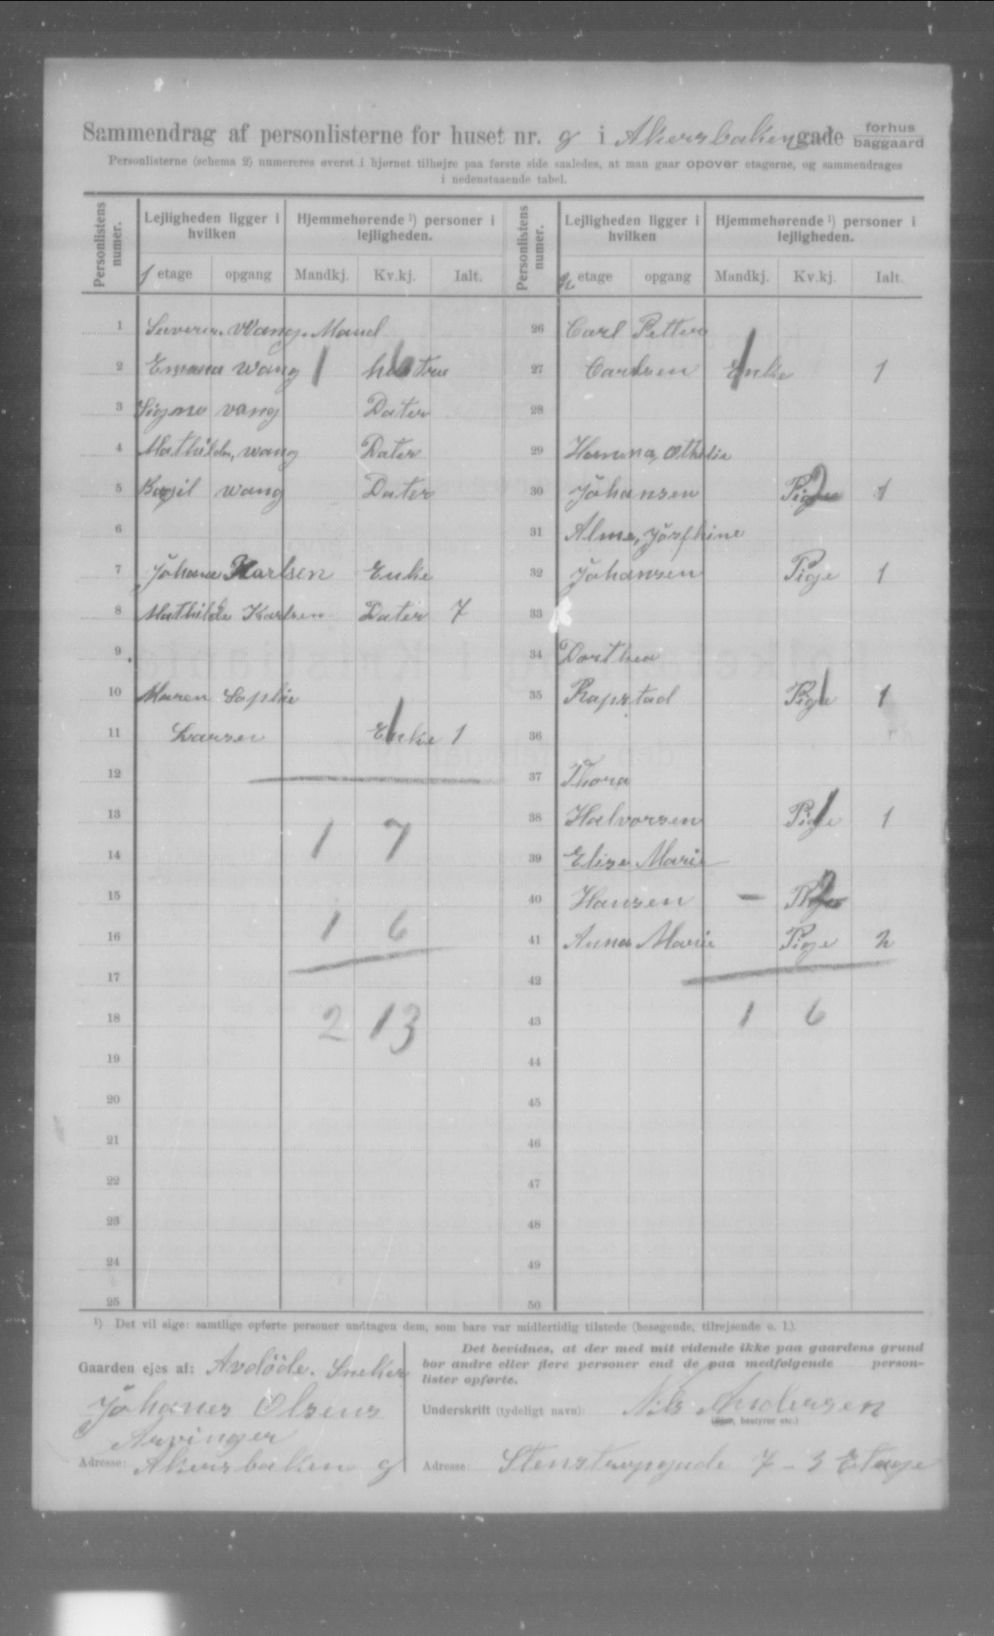 Sammendrag af personlisterne for huset nr. 9 i Akersbakengade forhus baggaard
Personlisterne (schema 2) numereres øverst i hjørnet tilhøjre paa første side saaledes, at man gaar opover etagerne, og sammendrages
i nedenstaaende tabel.
Personlistens numer.
Lejligheden ligger i hvilken
Hjemmehørende ¹) personer i lejligheden.
Personlistens numer.
Lejligheden ligger i hvilken
Hjemmehørende ¹) personer i lejligheden.
1 etage opgang Mandkj. Kv.kj. Ialt. 2 etage opgang Mandkj. Kv.kj. Ialt.
1 Severin Wang Mand
2 Emma Wang 1 hustru 6
3 Signe vang Dater
4 Mathilde, wang Dater
5 wang Dater
6
7 Johana Karlsen Enke
8 Mathilde Karlsen Dater 7
9
10 Maren Sophie
11 Larsen Enke 1 1
12
13 1 7
14
15
16 1 6
17
18 2 13
19
20
21
22
23
24
25
26 Carl Petter
27 Carlsen Enke 1 1
28
29 Hanna, Othelie
30 Johansen Pige 2 1
31 Alma, Josephine
32 Johansen Pige 1
33
34 Dorthea
35 Rapstad Pige 1 1
36
37 Thora
38 Halvorsen Pige 1 1
39 Elise Marie
40 Hansen – Pige 2
41 Anna Marie Pige 2
42
43 1 6
44
45
46
47
48
49
50
¹) Det vil sige: samtlige opførte personer undtagen dem, som bare var midlertidig tilstede (besøgende, tilrejsende o. l.).
Gaarden ejes af: Avdöde. Sneker
Johanes Olsens
Arvinger
Adresse: Akersbaken 9
Det bevidnes, at der med mit vidende ikke paa gaardens grund
bor andre eller flere personer end de paa medfølgende person-
lister opførte.
Underskrift (tydeligt navn): Nils Andersen
(Ejer, bestyrer etc.)
Adresse: Stenstrupgade 7 - 3 Etage